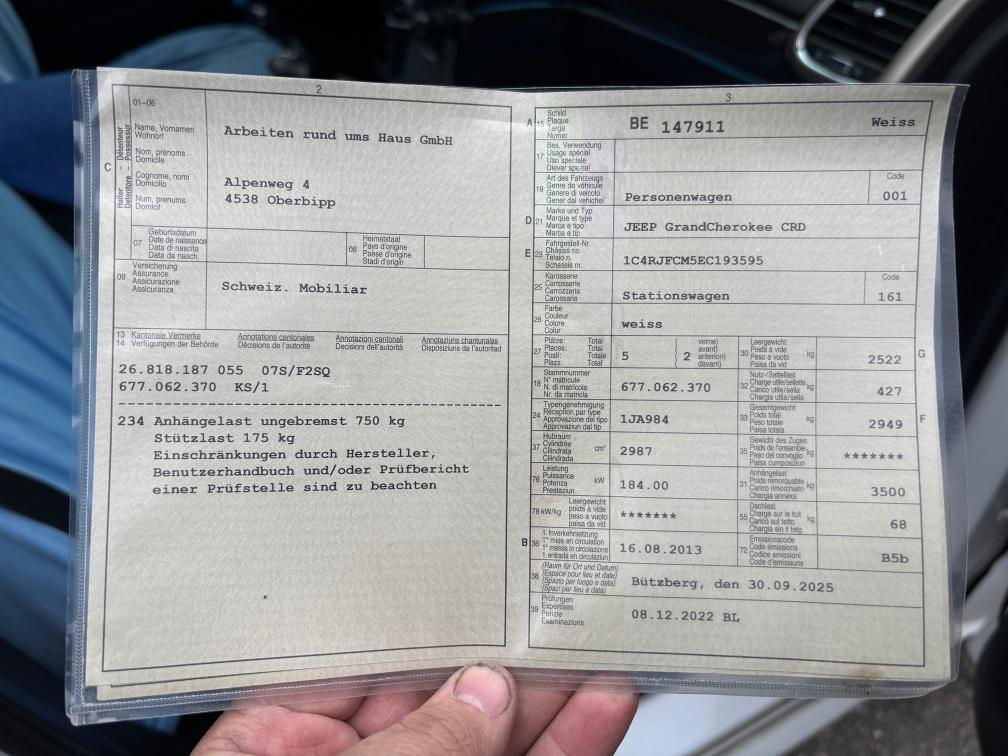 2
01-06
C
Halter Détenteur
Detentore Possessur
Name, Vornamen
Wohnort
Nom, prénoms
Domicile
Cognome, nomi
Domicilio
Num, prenums
Domicil
Arbeiten rund ums Haus GmbH
Alpenweg 4
4538 Oberbipp
07
Geburtsdatum
Date de naissance
Data di nascita
Data da nasch.
08
Heimatstaat
Pays d'origine
Paese d'origine
Stadi d'origin
09
Versicherung
Assurance
Assicurazione
Assicuranza
Schweiz. Mobiliar
13 Kantonale Vermerke Annotations cantonales Annotazioni cantonali Annotaziuns chantunalas
14 Verfügungen der Behörde Décisions de l'autorité Decisioni dell'autorità Disposiziuns da l'autoritad
26.818.187 055 07S/F2SQ
677.062.370 KS/1
234 Anhängelast ungebremst 750 kg
Stützlast 175 kg
Einschränkungen durch Hersteller,
Benutzerhandbuch und/oder Prüfbericht
einer Prüfstelle sind zu beachten
3
A 15
Schild
Plaque
Targa
Numer
BE 147911 Weiss
17
Bes. Verwendung
Usage spécial
Uso speciale
Diever spezial
19
Art des Fahrzeugs
Genre de véhicule
Genere di veicolo
Gener dal vehichel
Personenwagen
Code
001
D 21
Marke und Typ
Marque et type
Marca e tipo
Marca e tip
JEEP GrandCherokee CRD
E 23
Fahrgestell-Nr.
Châssis no
Telaio n.
Schassis nr.
1C4RJFCM5EC193595
25
Karosserie
Carrosserie
Carrozzeria
Carossaria
Stationswagen
Code
161
26
Farbe
Couleur
Colore
Colur
weiss
27
Plätze: Total
Places: Total
Posti: Totale
Plazs: Total
5
vorne)
avant)
( 2 anteriori)
davant)
30
Leergewicht
Poids à vide
Peso a vuoto
Paisa da vid
kg
2522
G
18
Stammnummer
N° matricule
N. di matricola
Nr. da matricla
677.062.370
32
Nutz-/Sattellast
Charge utile/sellette
Carico utile/sella
Chargia utila/sella
kg
427
24
Typengenehmigung
Réception par type
Approvazione del tipo
Approvaziun dal tip
1JA984
33
Gesamtgewicht
Poids total
Peso totale
Paisa totala
kg
2949
F
37
Hubraum
Cylindrée
Cilindrata
Cilindrada
cm³
2987
35
Gewicht des Zuges
Poids de l'ensemble
Peso del convoglio
Paisa cumposiziun
kg
*******
76
Leistung
Puissance
Potenza
Prestaziun
kW
184.00
31
Anhängelast
Poids remorquable
Carico rimorchiato
Chargia annexa
kg
3500
78 kW/kg
Leergewicht
poids à vide
peso a vuoto
paisa da vid
*******
55
Dachlast
Charge sur le toit
Carico sul tetto
Chargia sin il tetg
kg
68
B 36
1. Inverkehrsetzung
1re mise en circulation
1a messa in circolazione
1. entrada en circulaziun
16.08.2013
72
Emissionscode
Code émissions
Codice emissioni
Code d'emissiuns
B5b
38
(Raum für Ort und Datum)
(Espace pour lieu et date)
(Spazio per luogo e data)
(Spazi per lieu e data)
Bützberg, den 30.09.2025
39
Prüfungen
Expertises
Perizie
Examinaziuns
08.12.2022 BL